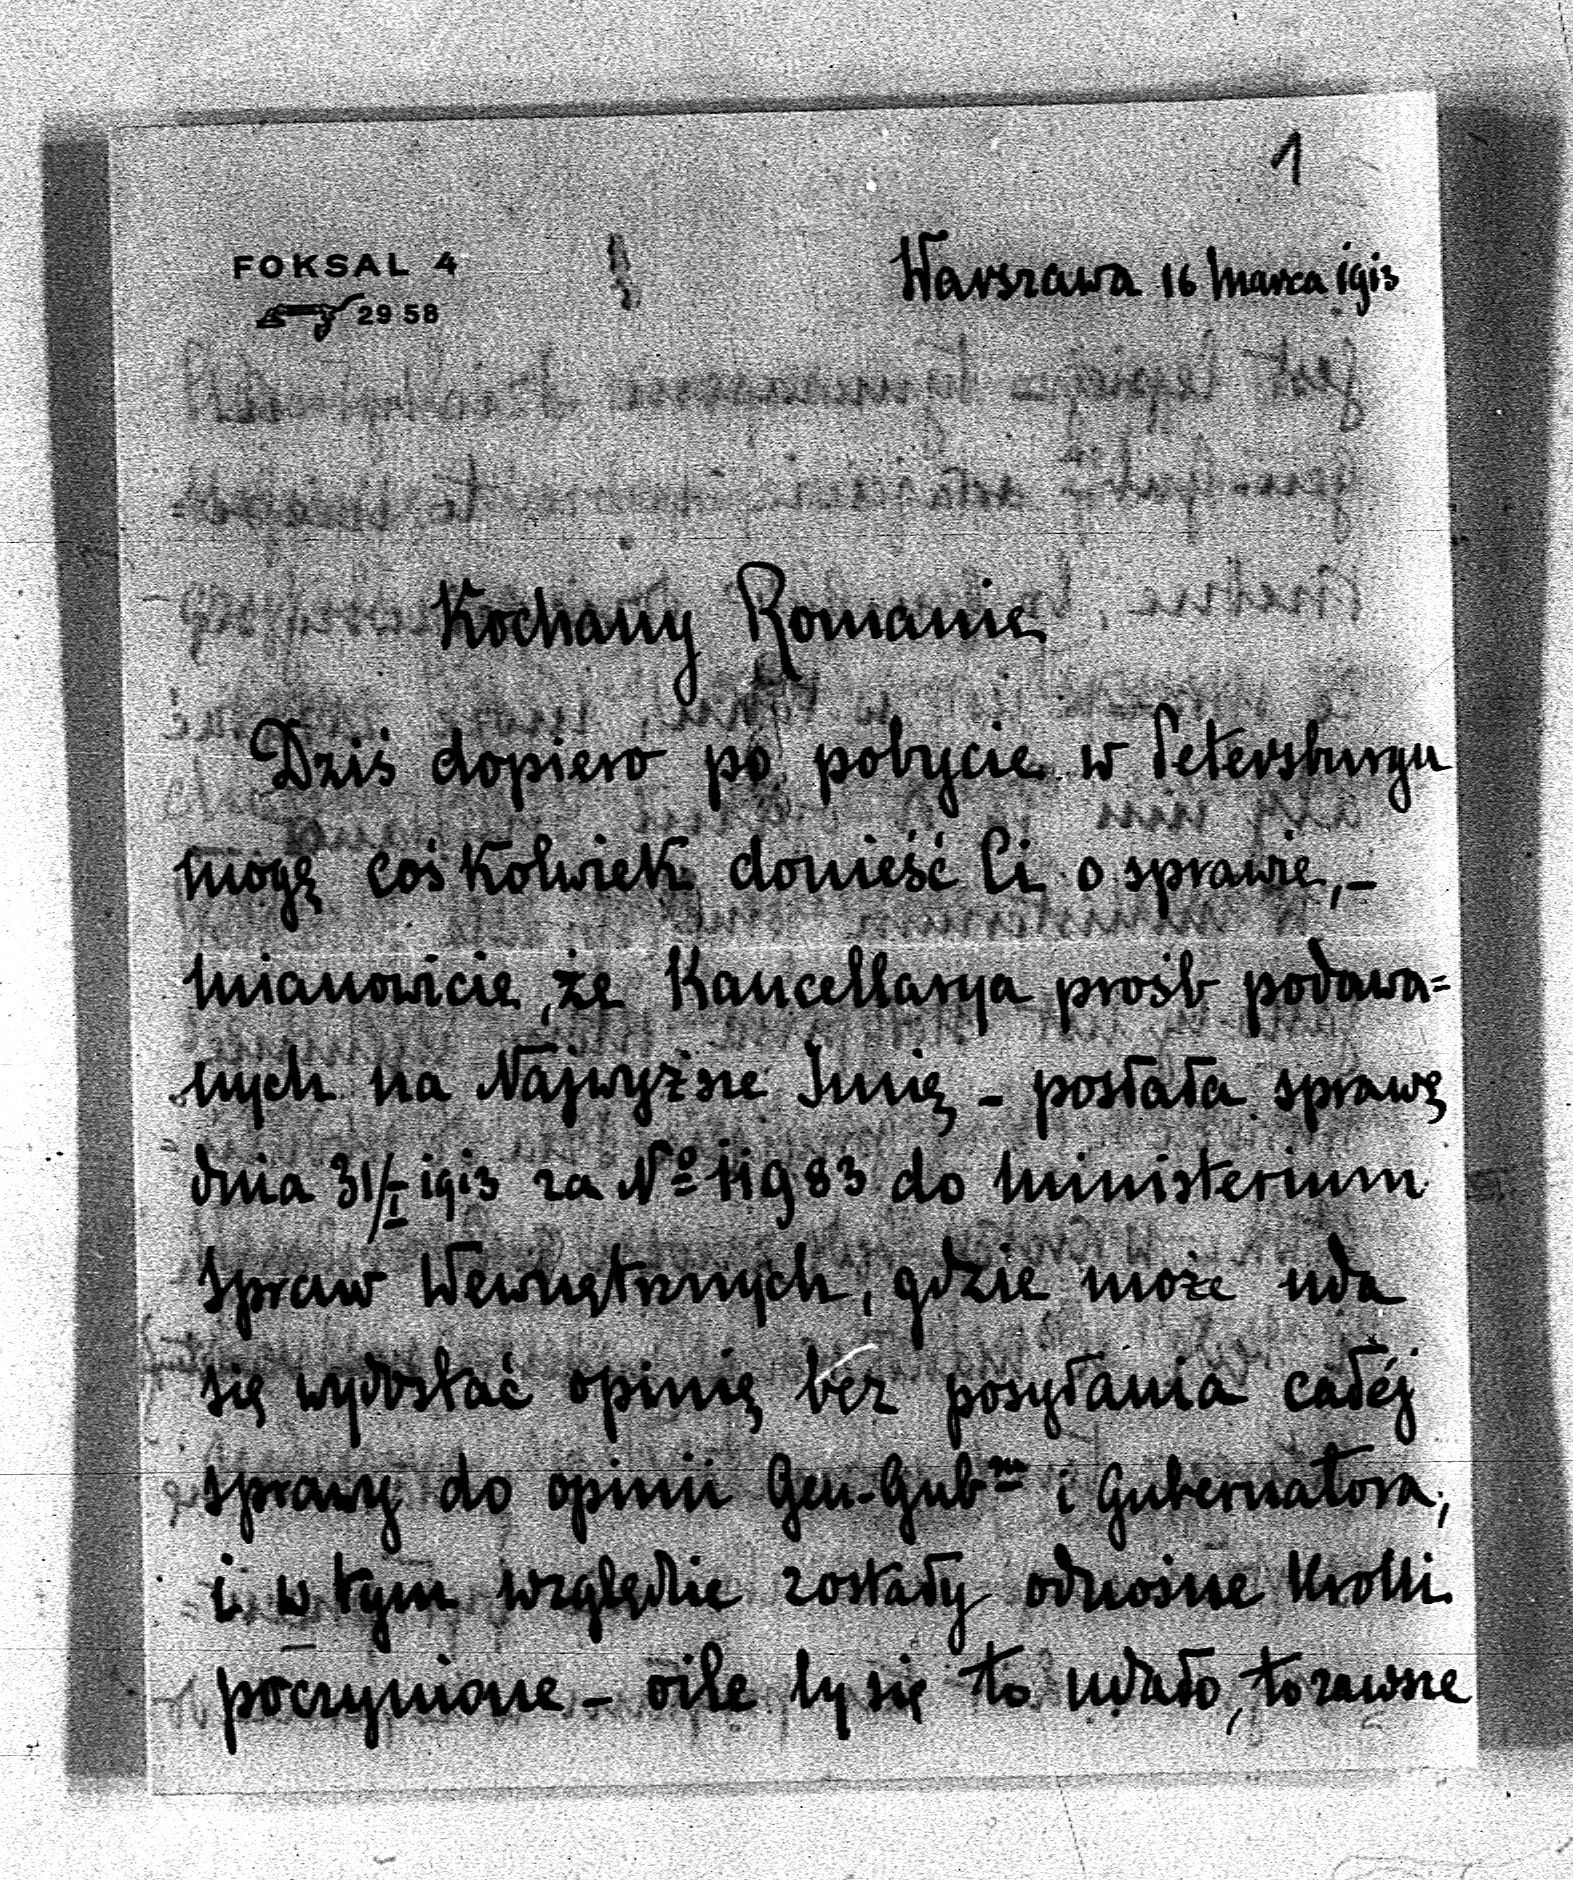 1
FOKSAL 4
Warszawa 16 marca 1913
29 58
Kochany Romanie
Dziś dopiero po pobycie w Petersburgu
mogę coś kolwiek donieść Ci o sprawie, –
mianowicie, że Kancellarya prośb podawa=
nych na Najwyższe Imię – posłała sprawę
dnia 31/I 1913 za № 11983 do ministerium
spraw Wewnętrznych, gdzie może uda
się wydostać opinię bez posyłania całéj
sprawy do opinii Gen-Gubra i Gubernatora,
i w tym względzie zostały odnośne kroki
poczynione – oile by się to udało, to zawsze